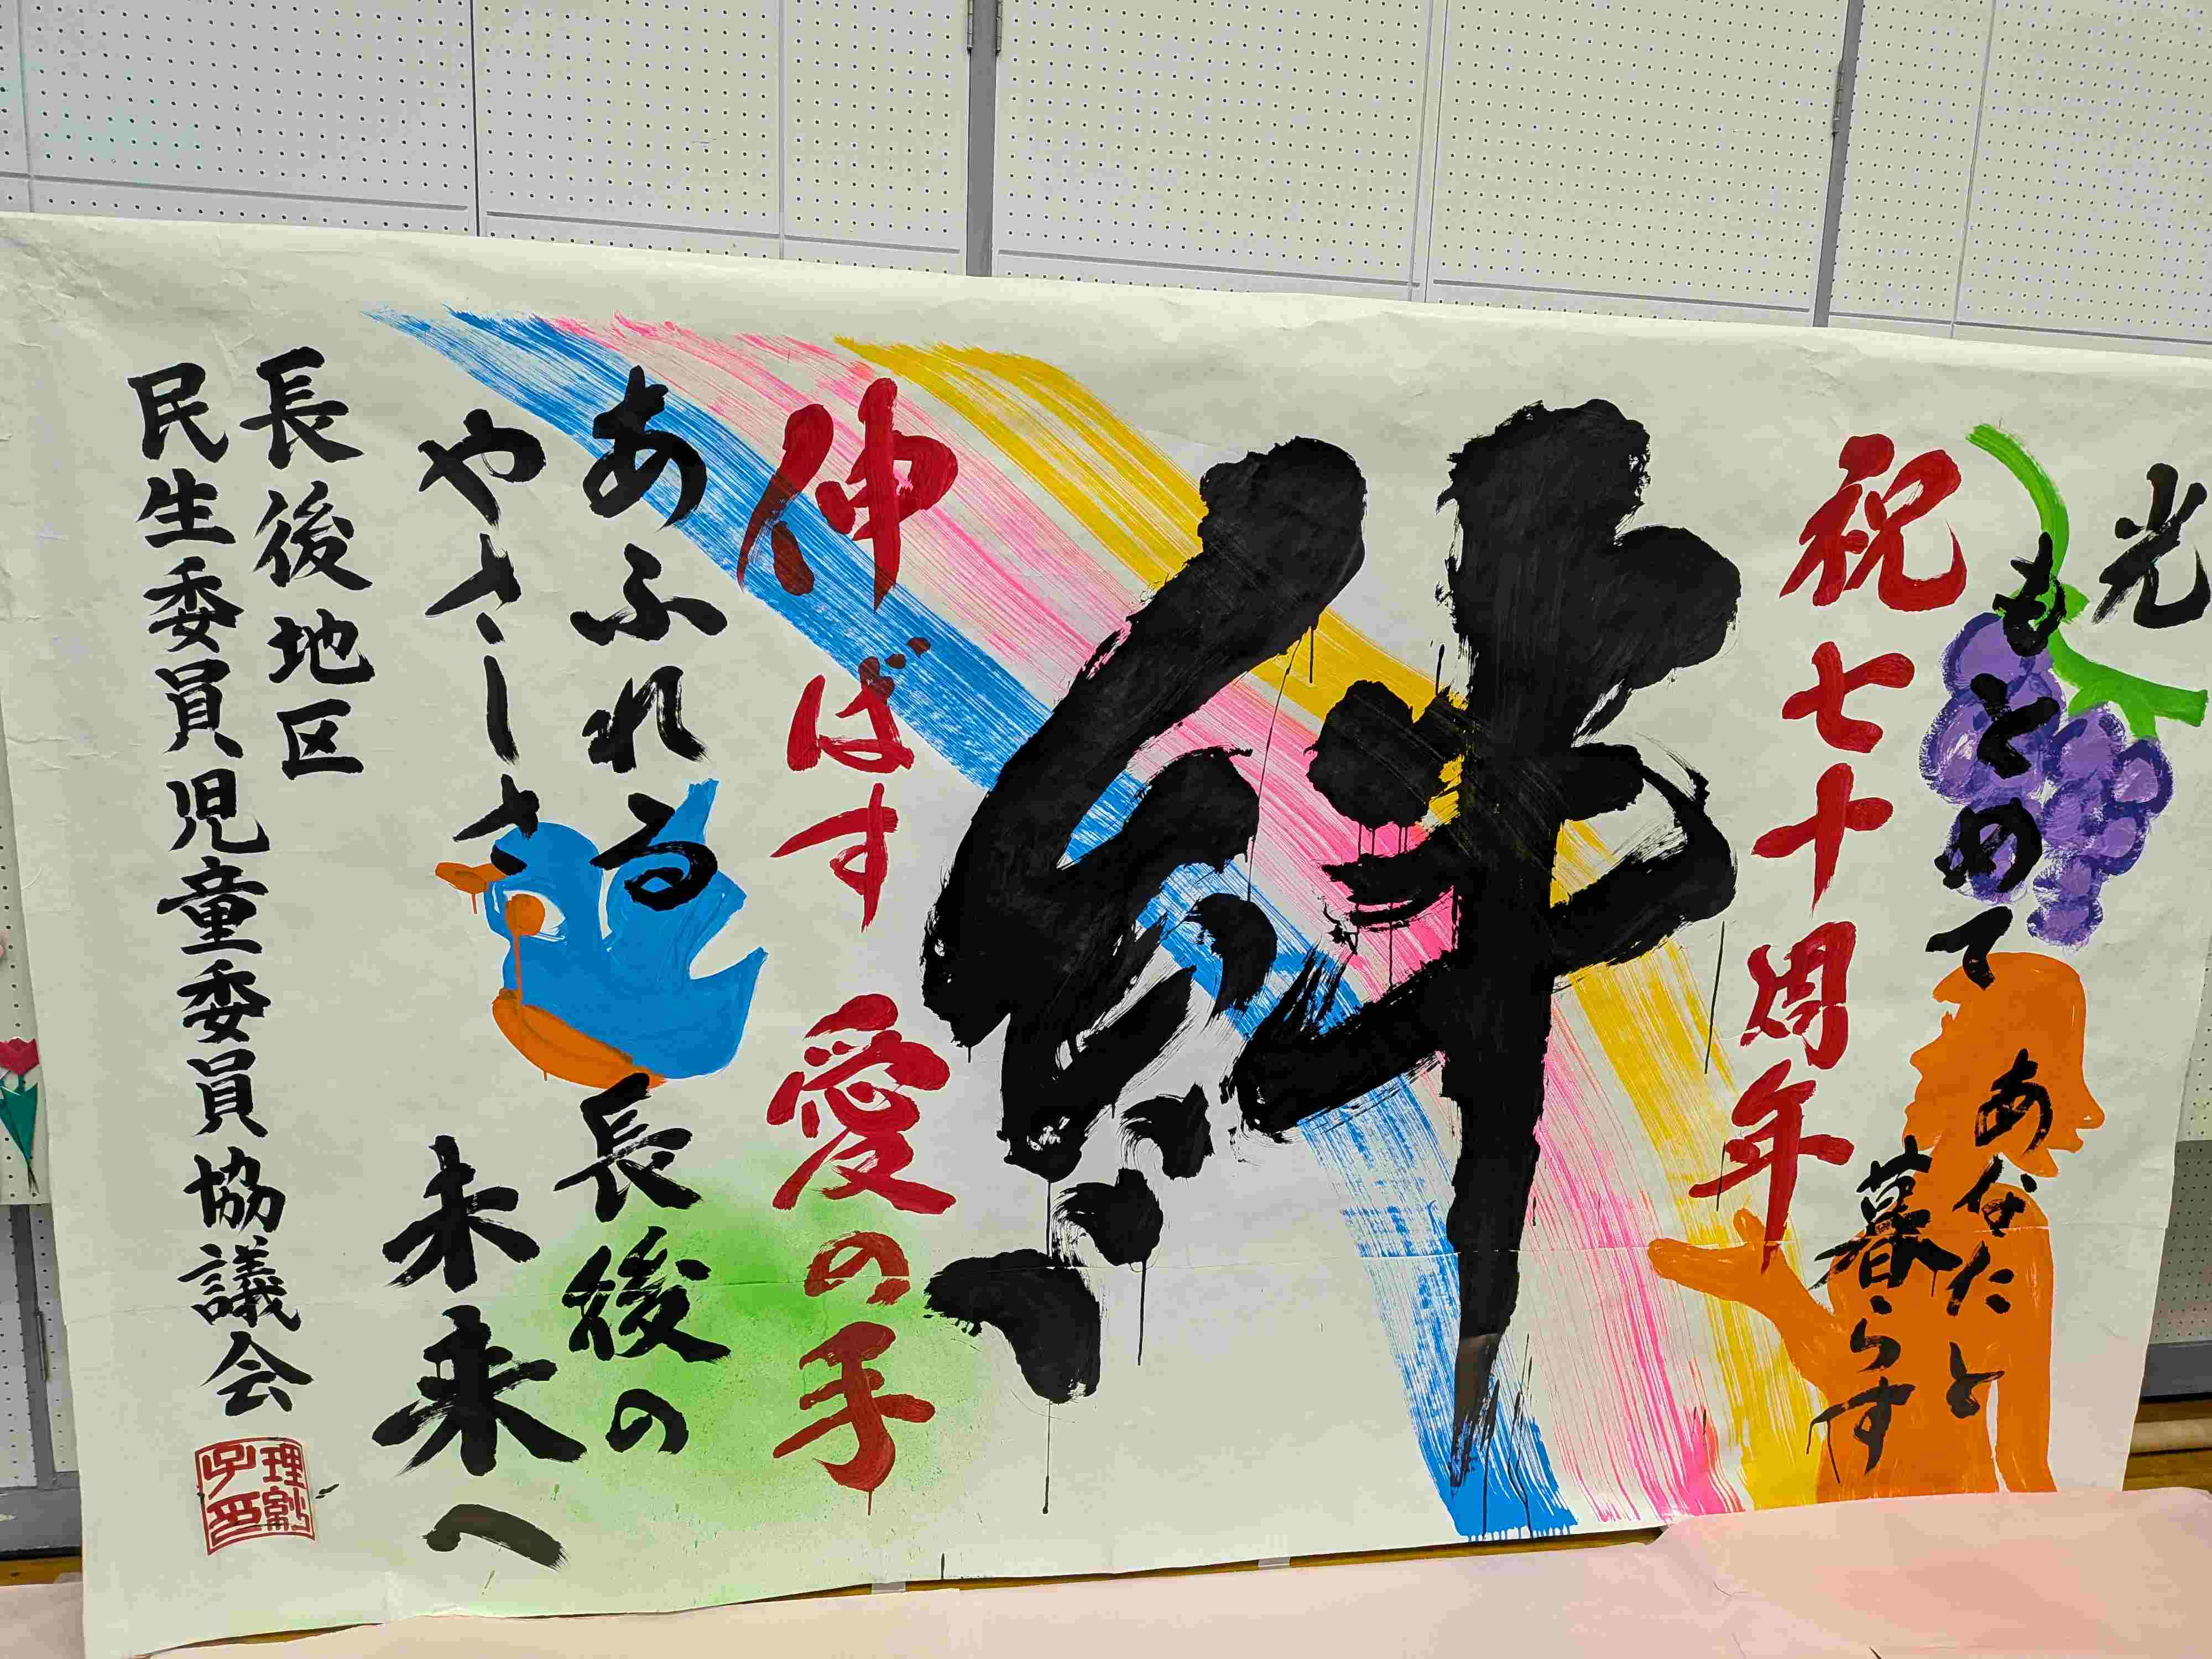 光
もとめて
あなたと
暮らす
祝七十周年
絆
伸ばす 愛の手
あふれる 長後の
やさしさ 未来へ
長後地区
民生委員児童委員協議会